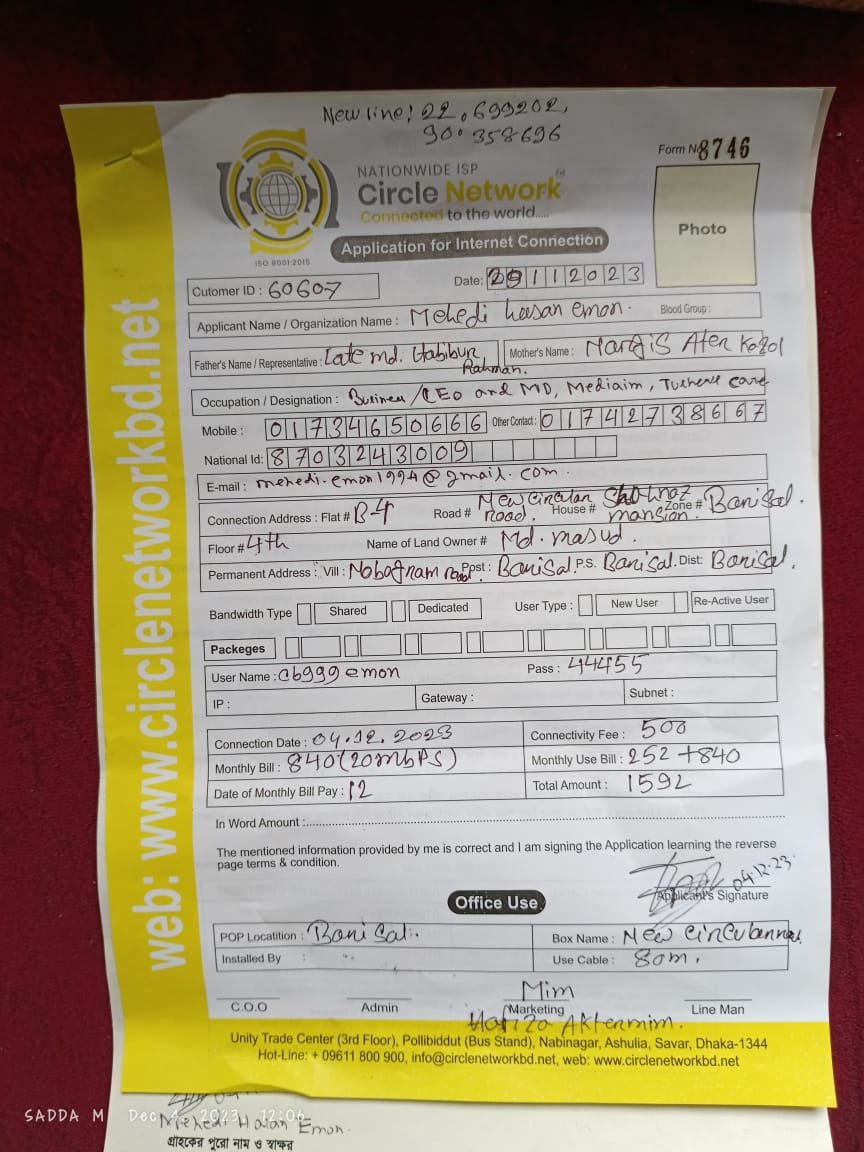 New line: 22.699202,
90.358696
NATIONWIDE ISP
Circle Network
Connected to the world.....
ISO 9001:2015
Form No 8746
Photo
Application for Internet Connection
Cutomer ID : 60607
Date: 29112023
Applicant Name / Organization Name : Mehedi hasan emon. Blood Group :
Father's Name / Representative : Late md. Habibur Rahman. Mother's Name : Nargis Akter Kozol
Occupation / Designation : Business/CEO and MD, Mediaim, care
Mobile : 01734650666 Other Contact : 01742738667
National Id: 8703243009
E-mail : mehedi.emon1994@gmail.com.
Connection Address : Flat # B-4 Road # New Circular Road. House # mansion. Zone # Barisal.
Floor # 4th Name of Land Owner # Md. masud.
Permanent Address : Vill : Nobogram road. Post : Barisal. P.S. Barisal. Dist: Barisal.
Bandwidth Type Shared Dedicated User Type : New User Re-Active User
Packeges
User Name : cb999emon Pass : 44455
IP : Gateway : Subnet :
Connection Date : 04.12.2023 Connectivity Fee : 500
Monthly Bill : 840(20mbps) Monthly Use Bill : 252+840
Date of Monthly Bill Pay : 12 Total Amount : 1592
In Word Amount :
The mentioned information provided by me is correct and I am signing the Application learning the reverse
page terms & condition.
04.12.23
Applicant's Signature
Office Use
POP Locatition : Barisal. Box Name : New
Installed By : Use Cable : 80m.
Mim
C.O.O Admin Marketing Line Man
Hafiza Aktermim.
Unity Trade Center (3rd Floor), Pollibiddut (Bus Stand), Nabinagar, Ashulia, Savar, Dhaka-1344
Hot-Line: + 09611 800 900, info@circlenetworkbd.net, web: www.circlenetworkbd.net
web: www.circlenetworkbd.net
SADDA M Dec 4, 2023, 12:06
Mehedi Hasan Emon.
গ্রাহকের পুরো নাম ও স্বাক্ষর